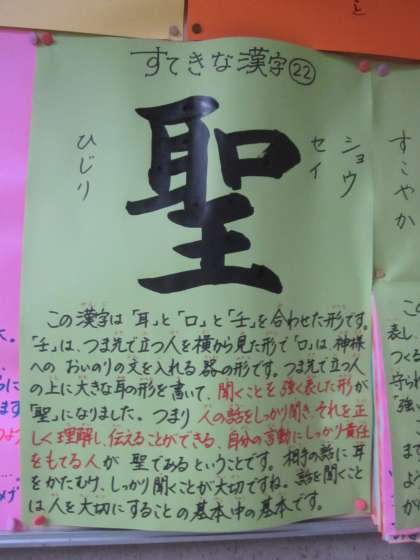 すてきな漢字㉒
聖
ショウ
セイ
ひじり
この漢字は「耳」と「口」と「𡈼」を合わせた形です。
「𡈼」は、つま先で立つ人を横から見た形で「口」は、神様
への おいのりの文を入れる 器の形です。つま先で立つ人
の上に大きな耳の形を書いて、聞くことを強く表した形が
「聖」になりました。つまり 人の話をしっかり聞き、それを正
しく理解し、伝えることができる、自分の言動にしっかり責任
をもてる人が 聖であるということです。相手の話に耳
をかたむけ、しっかり聞くことが大切ですね。話を聞くこと
は人を大切にすることの基本中の基本です。
すこやか